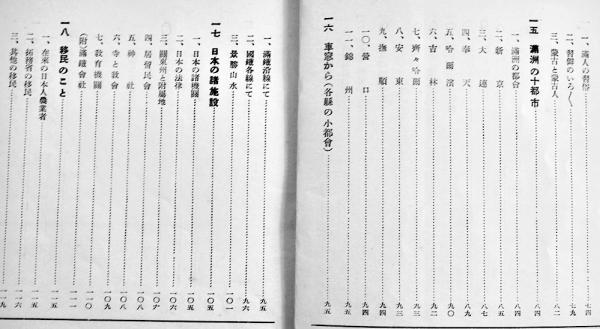 一、滿人の習俗……七四
二、習俗のいろ〳〵……七九
三、蒙古と蒙古人……八二
一五　滿洲の十都市……八四
一、滿洲の都會……八四
二、新京……八五
三、大連……八七
四、奉天……八八
五、哈爾濱……九〇
六、吉林……九二
七、齊々哈爾……九三
八、安東……九三
九、撫順……九四
一〇、營口……九四
一一、錦州……九五
一六　車窓から(各縣の小都會)……九五
一、滿鐵沿線にて……九五
二、國鐵各線にて……九六
三、景勝山水……一〇一
一七　日本の諸施設……一〇五
一、日本の諸機關……一〇五
二、日本の法律……一〇五
三、關東州と附屬地……一〇六
四、居留民會……一〇七
五、神社……一〇八
六、寺と教會……一〇八
七、教育機關……一〇九
(附)滿鐵會社……一一〇
一八　移民のこと……一一一
一、在來の日本人農業者……一一五
二、拓務省の移民……一一六
三、其他の移民……一一九